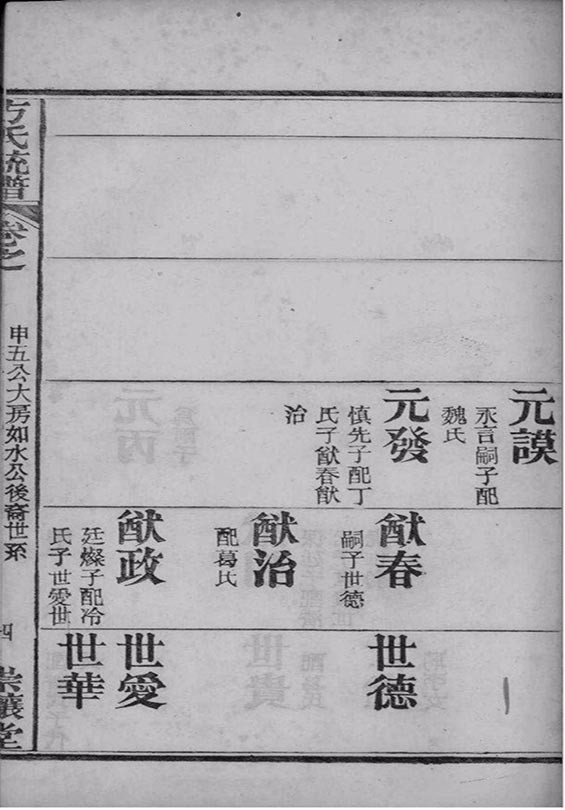 元謨
永言嗣子配
魏氏
元發
慎先子配丁
氏子猷春猷
治
猷春
嗣子世德
猷治
配葛氏
猷政
廷燦子配冷
氏子世愛世
世德
世愛
世華
方氏統譜
卷之
申五公大房如水公後裔世系
四
崇讓堂